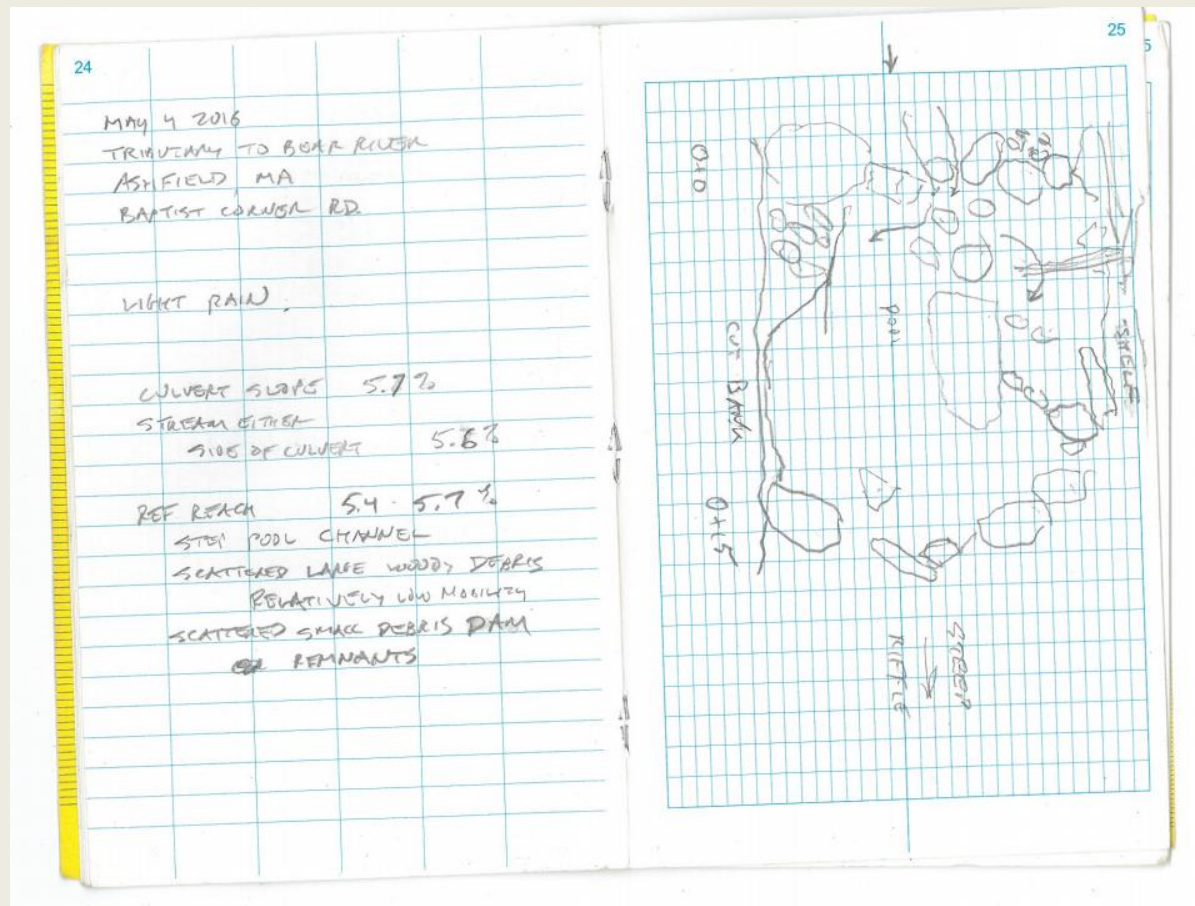 24
MAY 4 2016
TRIBUTARY TO BEAR RIVER
ASHFIELD, MA
BAPTIST CORNER RD.
LIGHT RAIN.
CULVERT SLOPE 5.7%
STREAM EITHER
SIDE OF CULVERT 5.6%
REF REACH 5.4 - 5.7%
STEP POOL CHANNEL
SCATTERED LARGE WOODY DEBRIS
RELATIVELY LOW MOBILITY
SCATTERED SMALL DEBRIS DAM
REMNANTS
25
0+0
POOL
SHELF
CUT BANK
0+15
STEEP
RIFFLE
5